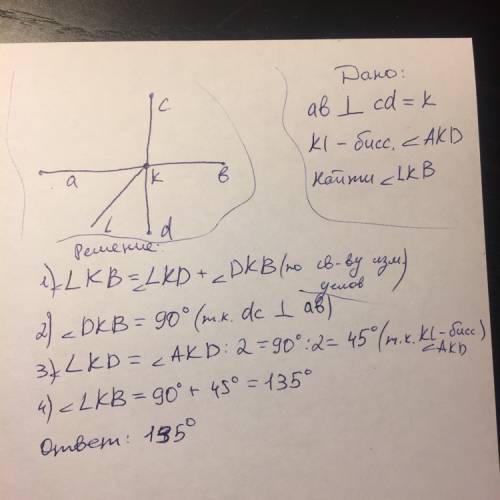 C
a
K
B
L
d
Дано:
ab ⊥ cd = K
Kl - бисс. ∠AKD
Найти ∠LKB
Решение:
1) ∠LKB = ∠LKD + ∠DKB (по св-ву изм. углов)
2) ∠DKB = 90° (т.к. dc ⊥ ab)
3) ∠LKD = ∠AKD : 2 = 90° : 2 = 45° (т.к. Kl - бисс) ∠AKD
4) ∠LKB = 90° + 45° = 135°
Ответ: 135°